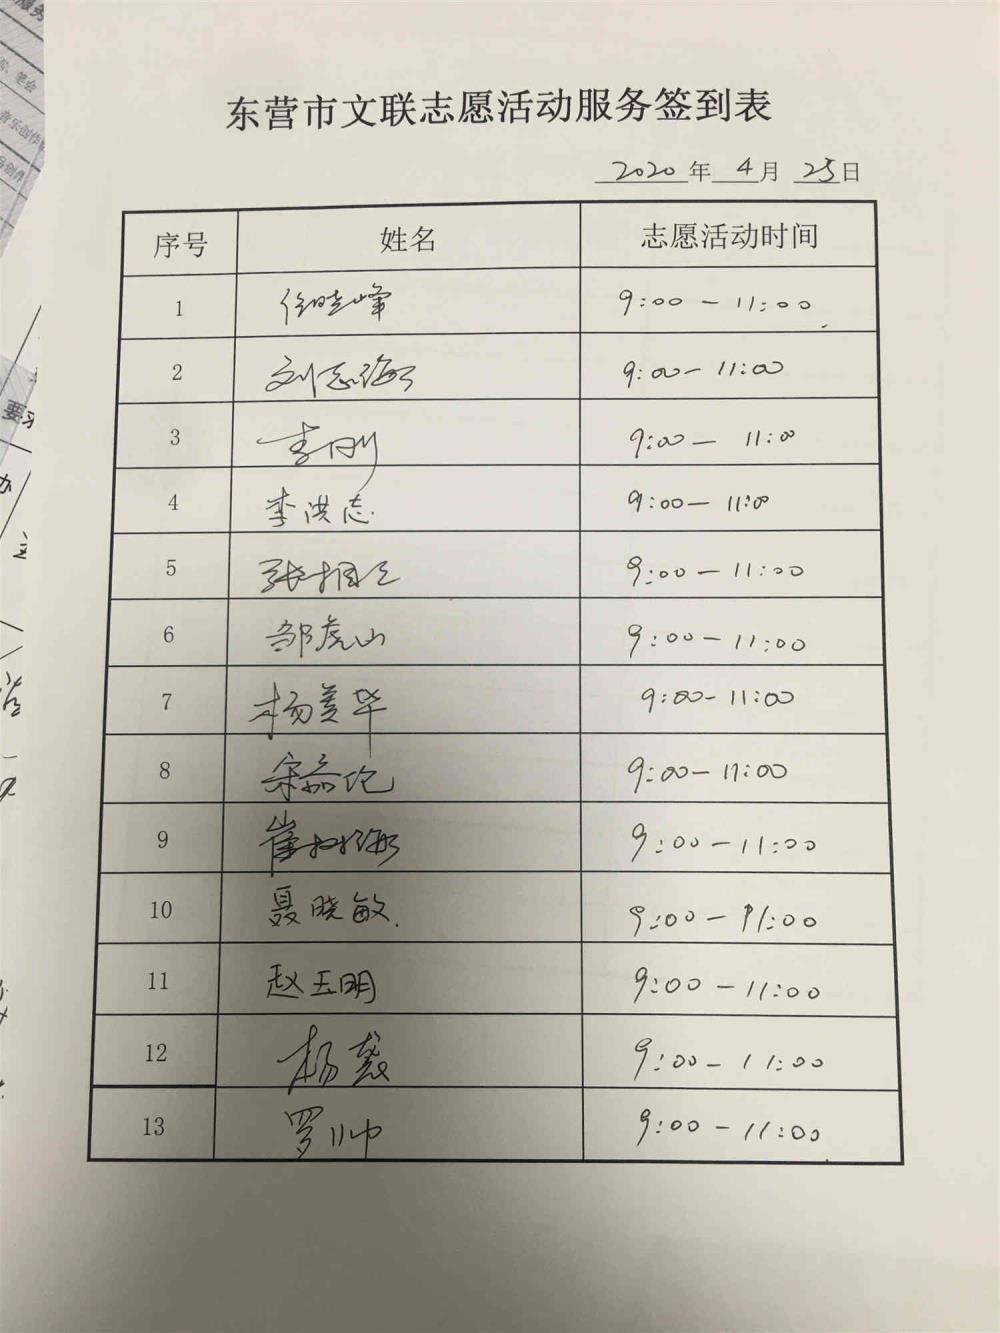 东营市文联志愿活动服务签到表
2020年 4月 25日
序号 姓名 志愿活动时间
1 任晓峰 9:00-11:00
2 刘志海 9:00-11:00
3 李刚 9:00-11:0
4 李洪志 9:00-11:0
5 9:00-11:00
6 邹虎山 9:00-11:00
7 杨美华 9:00-11:00
8 宋嘉伦 9:00-11:00
9 9:00-11:00
10 聂晓敏. 9:00-11:00
11 赵玉明 9:00-11:00
12 杨 9:00-11:00
13 罗帅 9:00-11:00
要求